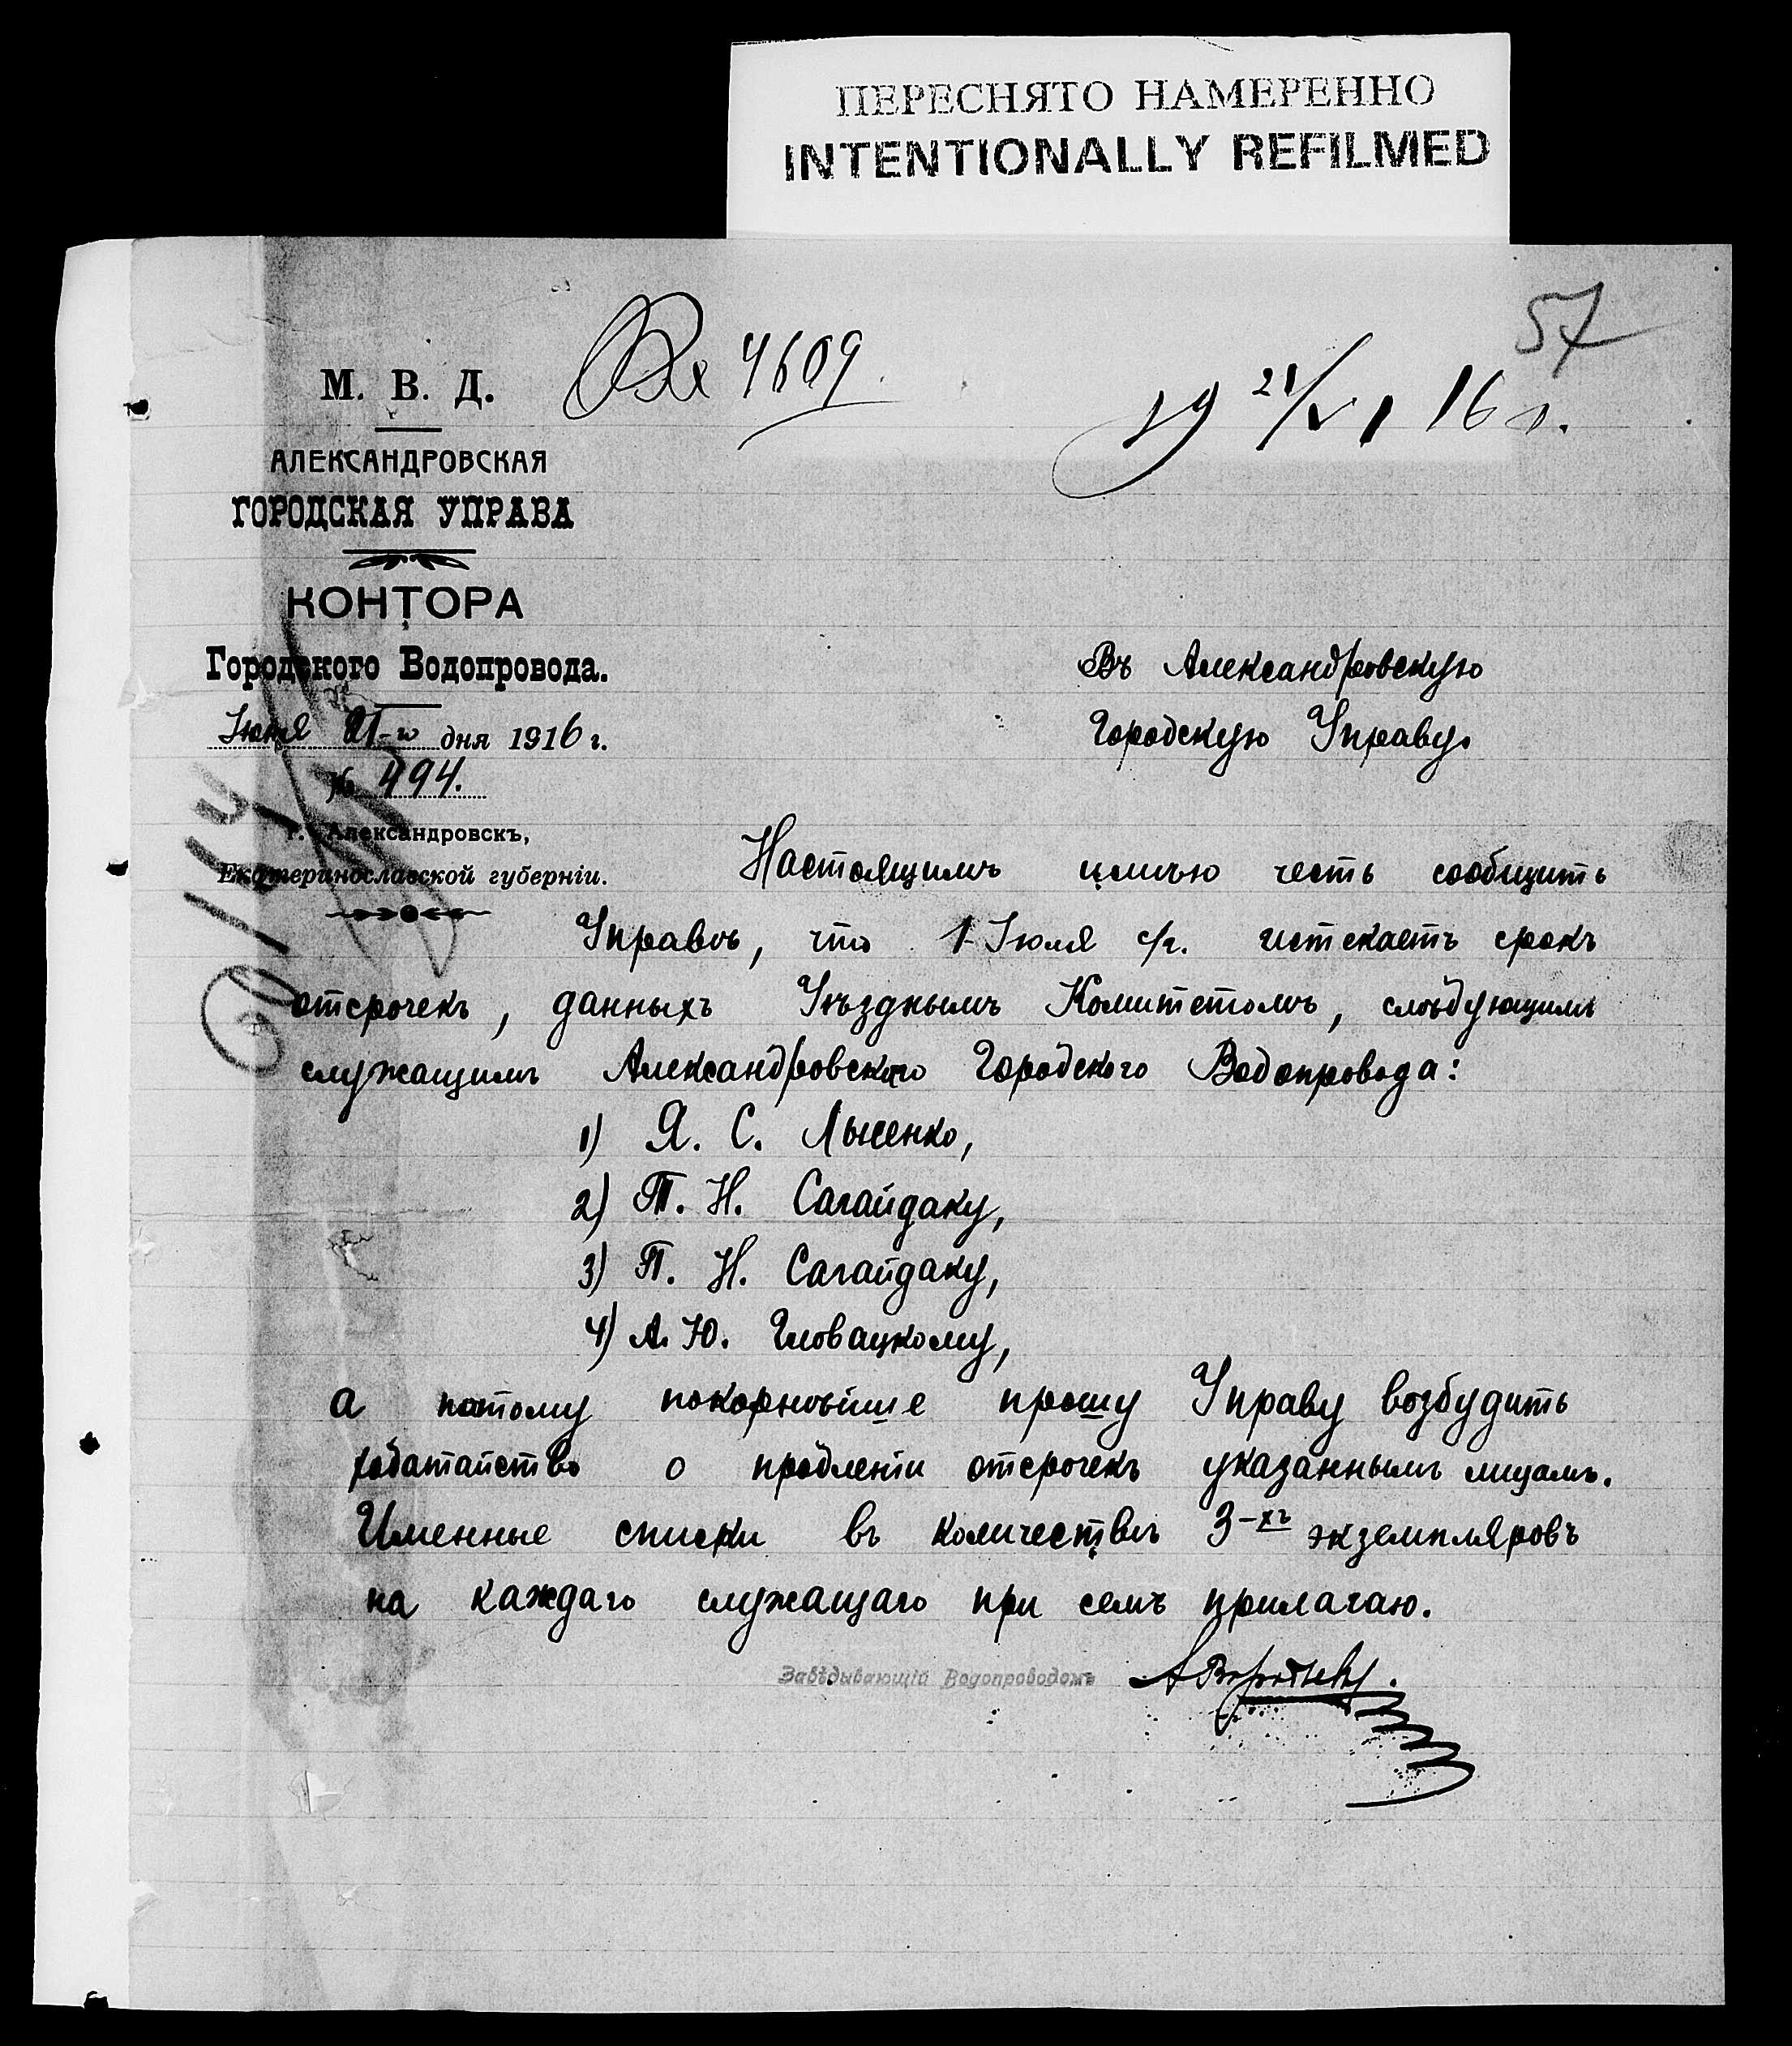 ПЕРЕСНЯТО НАМЕРЕННО
INTENTIONALLY REFILMED
57
Вх 4609
19 21/VI 16 г.
М. В. Д.
АЛЕКСАНДРОВСКАЯ
ГОРОДСКАЯ УПРАВА
КОНТОРА
Городского Водопровода.
Іюня 21-го дня 1916 г.
№ 494.
г. Александровскъ,
Екатеринославской губерніи.
Въ Александровскую
Городскую Управу.
Настоящимъ имѣю честь сообщить
Управѣ, что 1 Іюля с/г. истекаетъ срокъ
отсрочекъ, данныхъ Уѣзднымъ Комитетомъ, слѣдующимъ
служащимъ Александровского Городского Водопровода:
1) Я. С. Лысенко,
2) Т. Н. Сагайдаку,
3) П. Н. Сагайдаку,
4) А. Ю. Гловацкому,
а потому покорнѣйше прошу Управу возбудить
ходатайство о продленіи отсрочекъ указаннымъ лицамъ.
Именные списки въ количествѣ 3-хъ экземпляровъ
на каждаго служащаго при семъ прилагаю.
Завѣдывающій Водопроводомъ